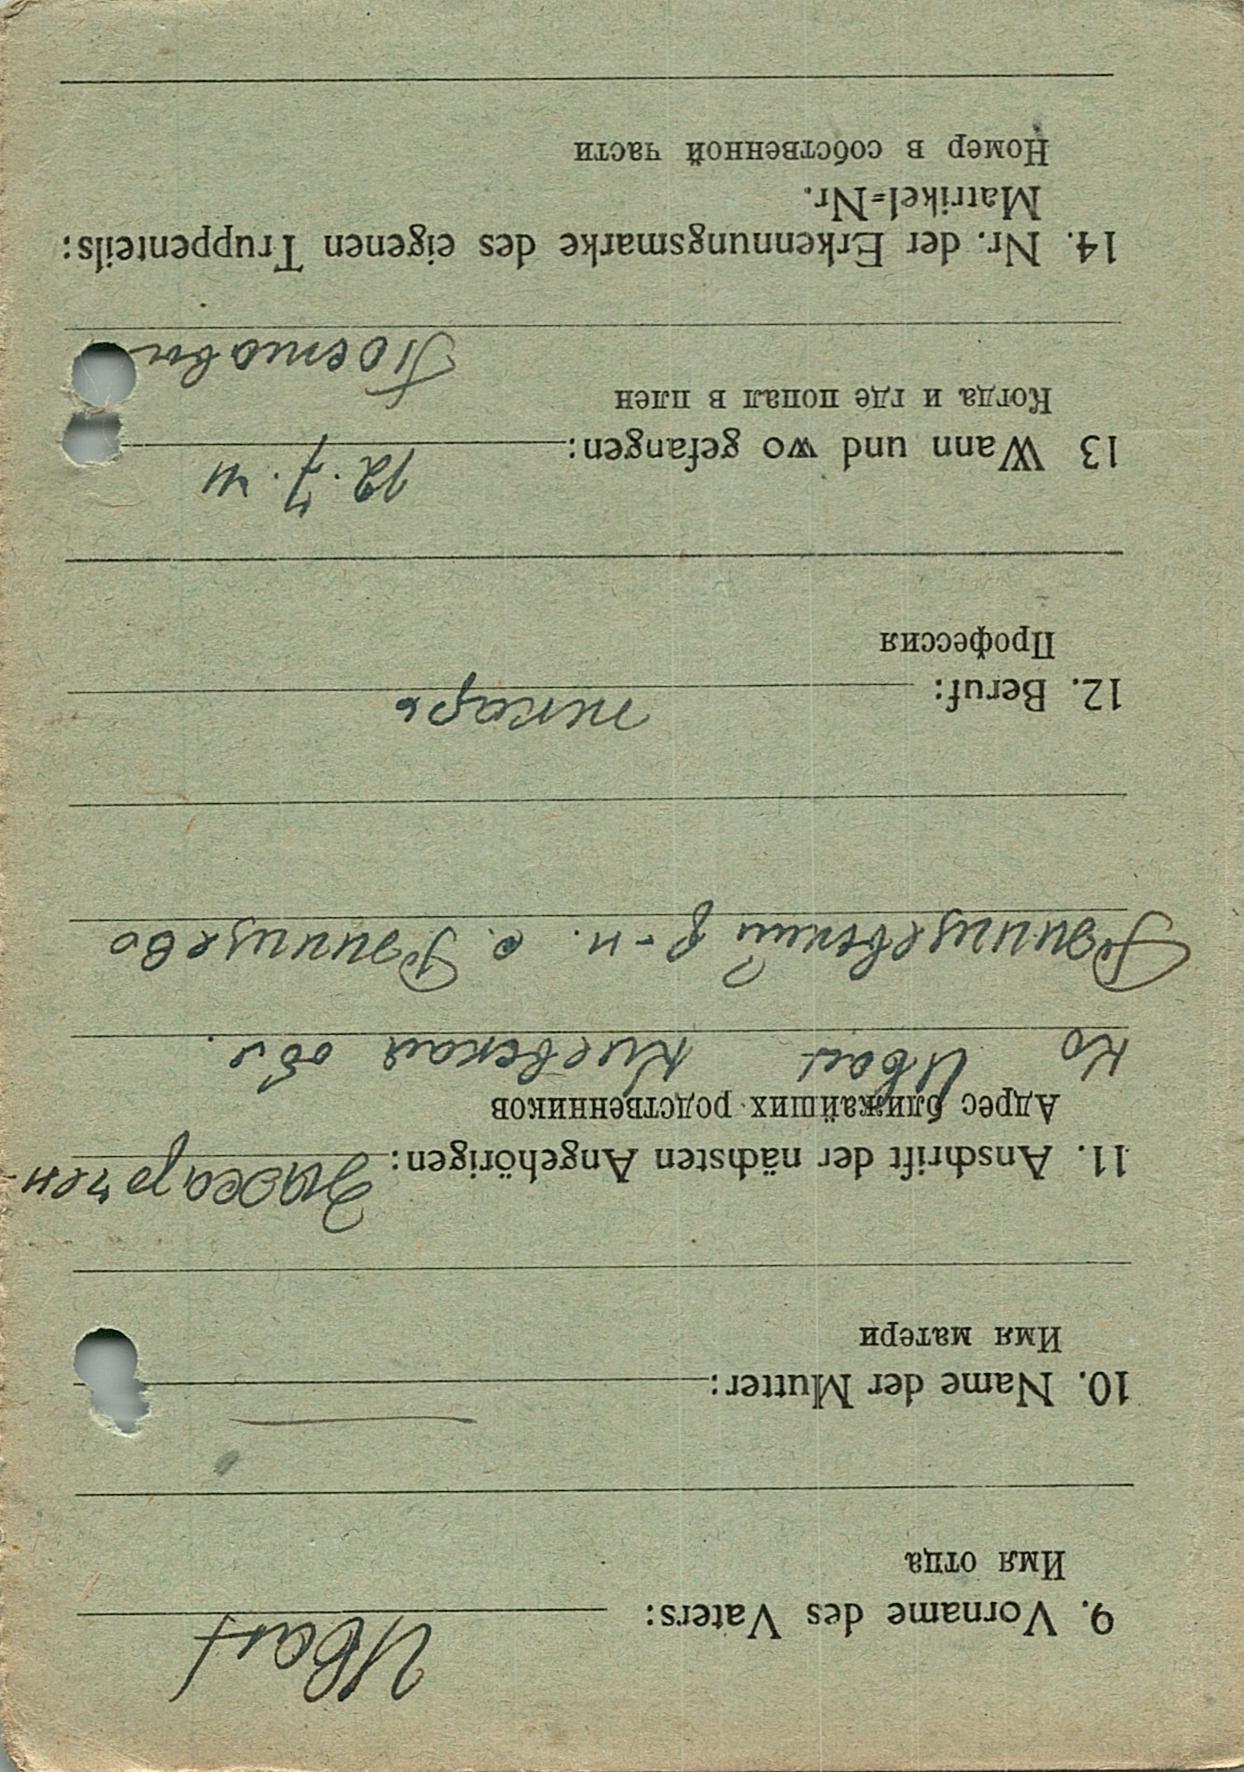 9. Vorname des Vaters: Иван
Имя отца
10. Name der Mutter: —
Имя матери
11. Anschrift der nächsten Angehörigen:
Адрес ближайших родственников
ко Иван Киевская обл.
р-н. с.
12. Beruf:
Профессия
13 Wann und wo gefangen: 12.7.41
Когда и где попал в плен
14. Nr. der Erkennungsmarke des eigenen Truppenteils:
Matrikel=Nr.
Номер в собственной части